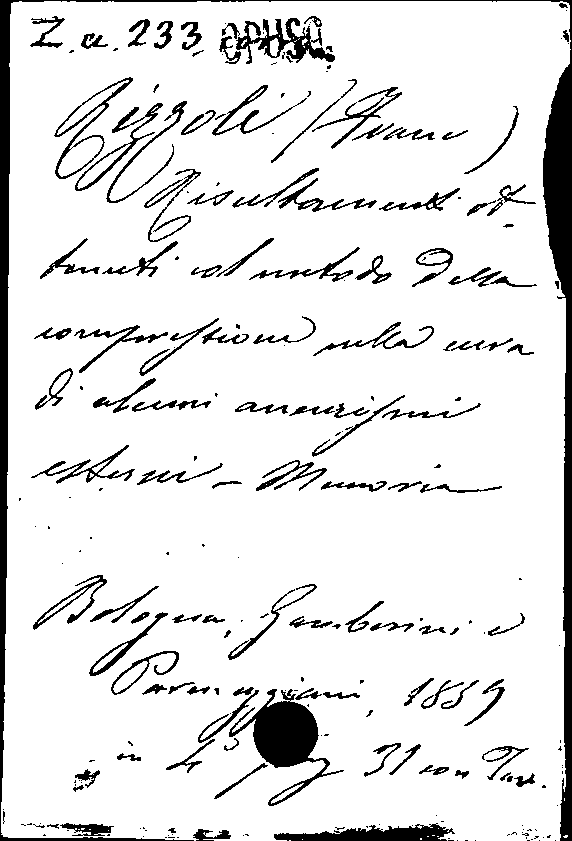 Z. a. 233. OPUSC.
Rizzoli (Franc)
Risultamenti ot-
tenuti col metodo della
compressione nella cura
di alcuni aneurismi
esterni - Memoria
Bologna, Gamberini e
Parmeggiani, 1859
in 4° pag 31 con Tav.